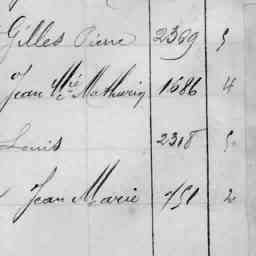 Gilles Pierre 2369 5
Jean Mie Mathurin 1686 4
Louis 2318 5
Jean Marie 751 2